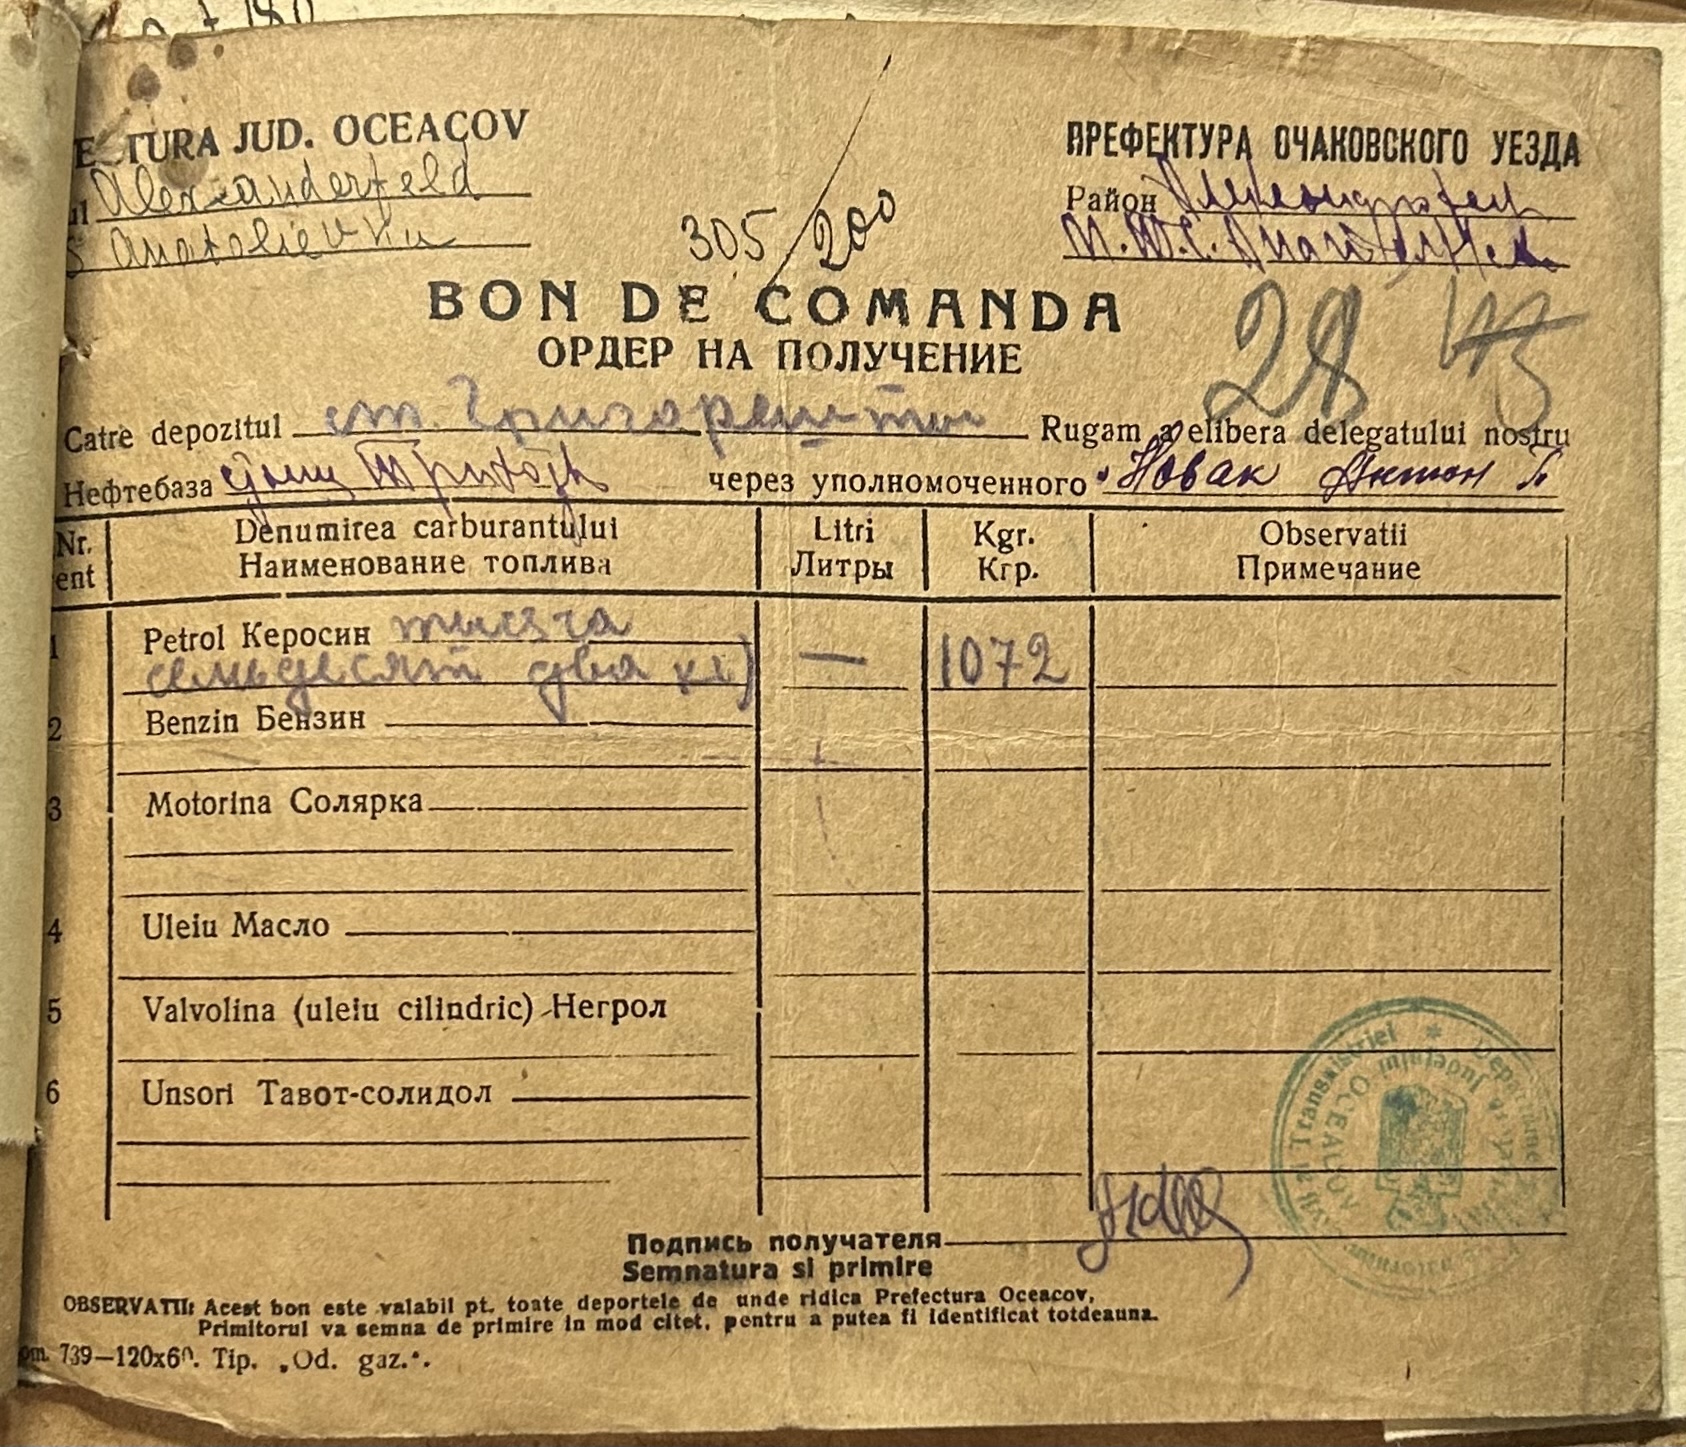 ECTURA JUD. OCEACOV
ПРЕФЕКТУРА ОЧАКОВСКОГО УЕЗДА
ul Alexanderfeld
Район
S Anatolievka
М.Т.С.
305/200
BON DE COMANDA
ОРДЕР НА ПОЛУЧЕНИЕ
28
Catre depozitul ст. Григорешты Rugam a elibera delegatului nostru
Нефтебаза через уполномоченного Новак Антон Г.
Nr. Denumirea carburantului Litri Kgr. Observatii
ent Наименование топлива Литры Кгр. Примечание
1 Petrol Керосин тысяча
семьдесят два кг) — 1072
2 Benzin Бензин
3 Motorina Солярка
4 Uleiu Масло
5 Valvolina (uleiu cilindric) Негрол
6 Unsori Тавот-солидол
Подпись получателя
Semnatura si primire
OBSERVATII: Acest bon este valabil pt. toate deportele de unde ridica Prefectura Oceacov,
Primitorul va semna de primire in mod citet, pentru a putea fi identificat totdeauna.
om. 739—120x60. Tip. „Od. gaz.“.
Transnistriei * Departime
Judetului
OCEACOV